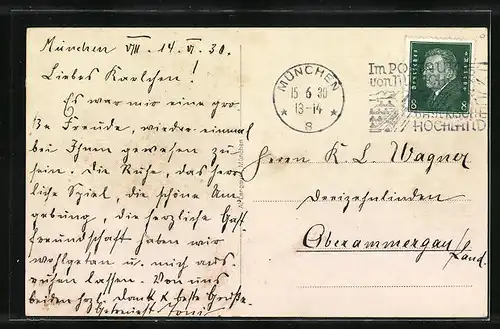 München VIII. 14. VI. 30.
Liebes Karlchen!
Es war mir eine gro-
ße Freude, wieder einmal
bei Ihnen gewesen zu
sein. Die Ruhe, das herr-
liche Spiel, die schöne Um
gebung, die herzliche Gast
freundschaft haben mir
wohlgetan u. mich aus
ruhen lassen. Von uns
beiden herzl. Dank & beste Grüße
Getreuest Toni
MÜNCHEN
15 6 30
13-14
8
Im
von
BAYERISCHE
HOCHLAND
Deutsches Reich
8 8
Herrn K. L. Wagner
Dreizehnlinden
Oberammergau/
Land.